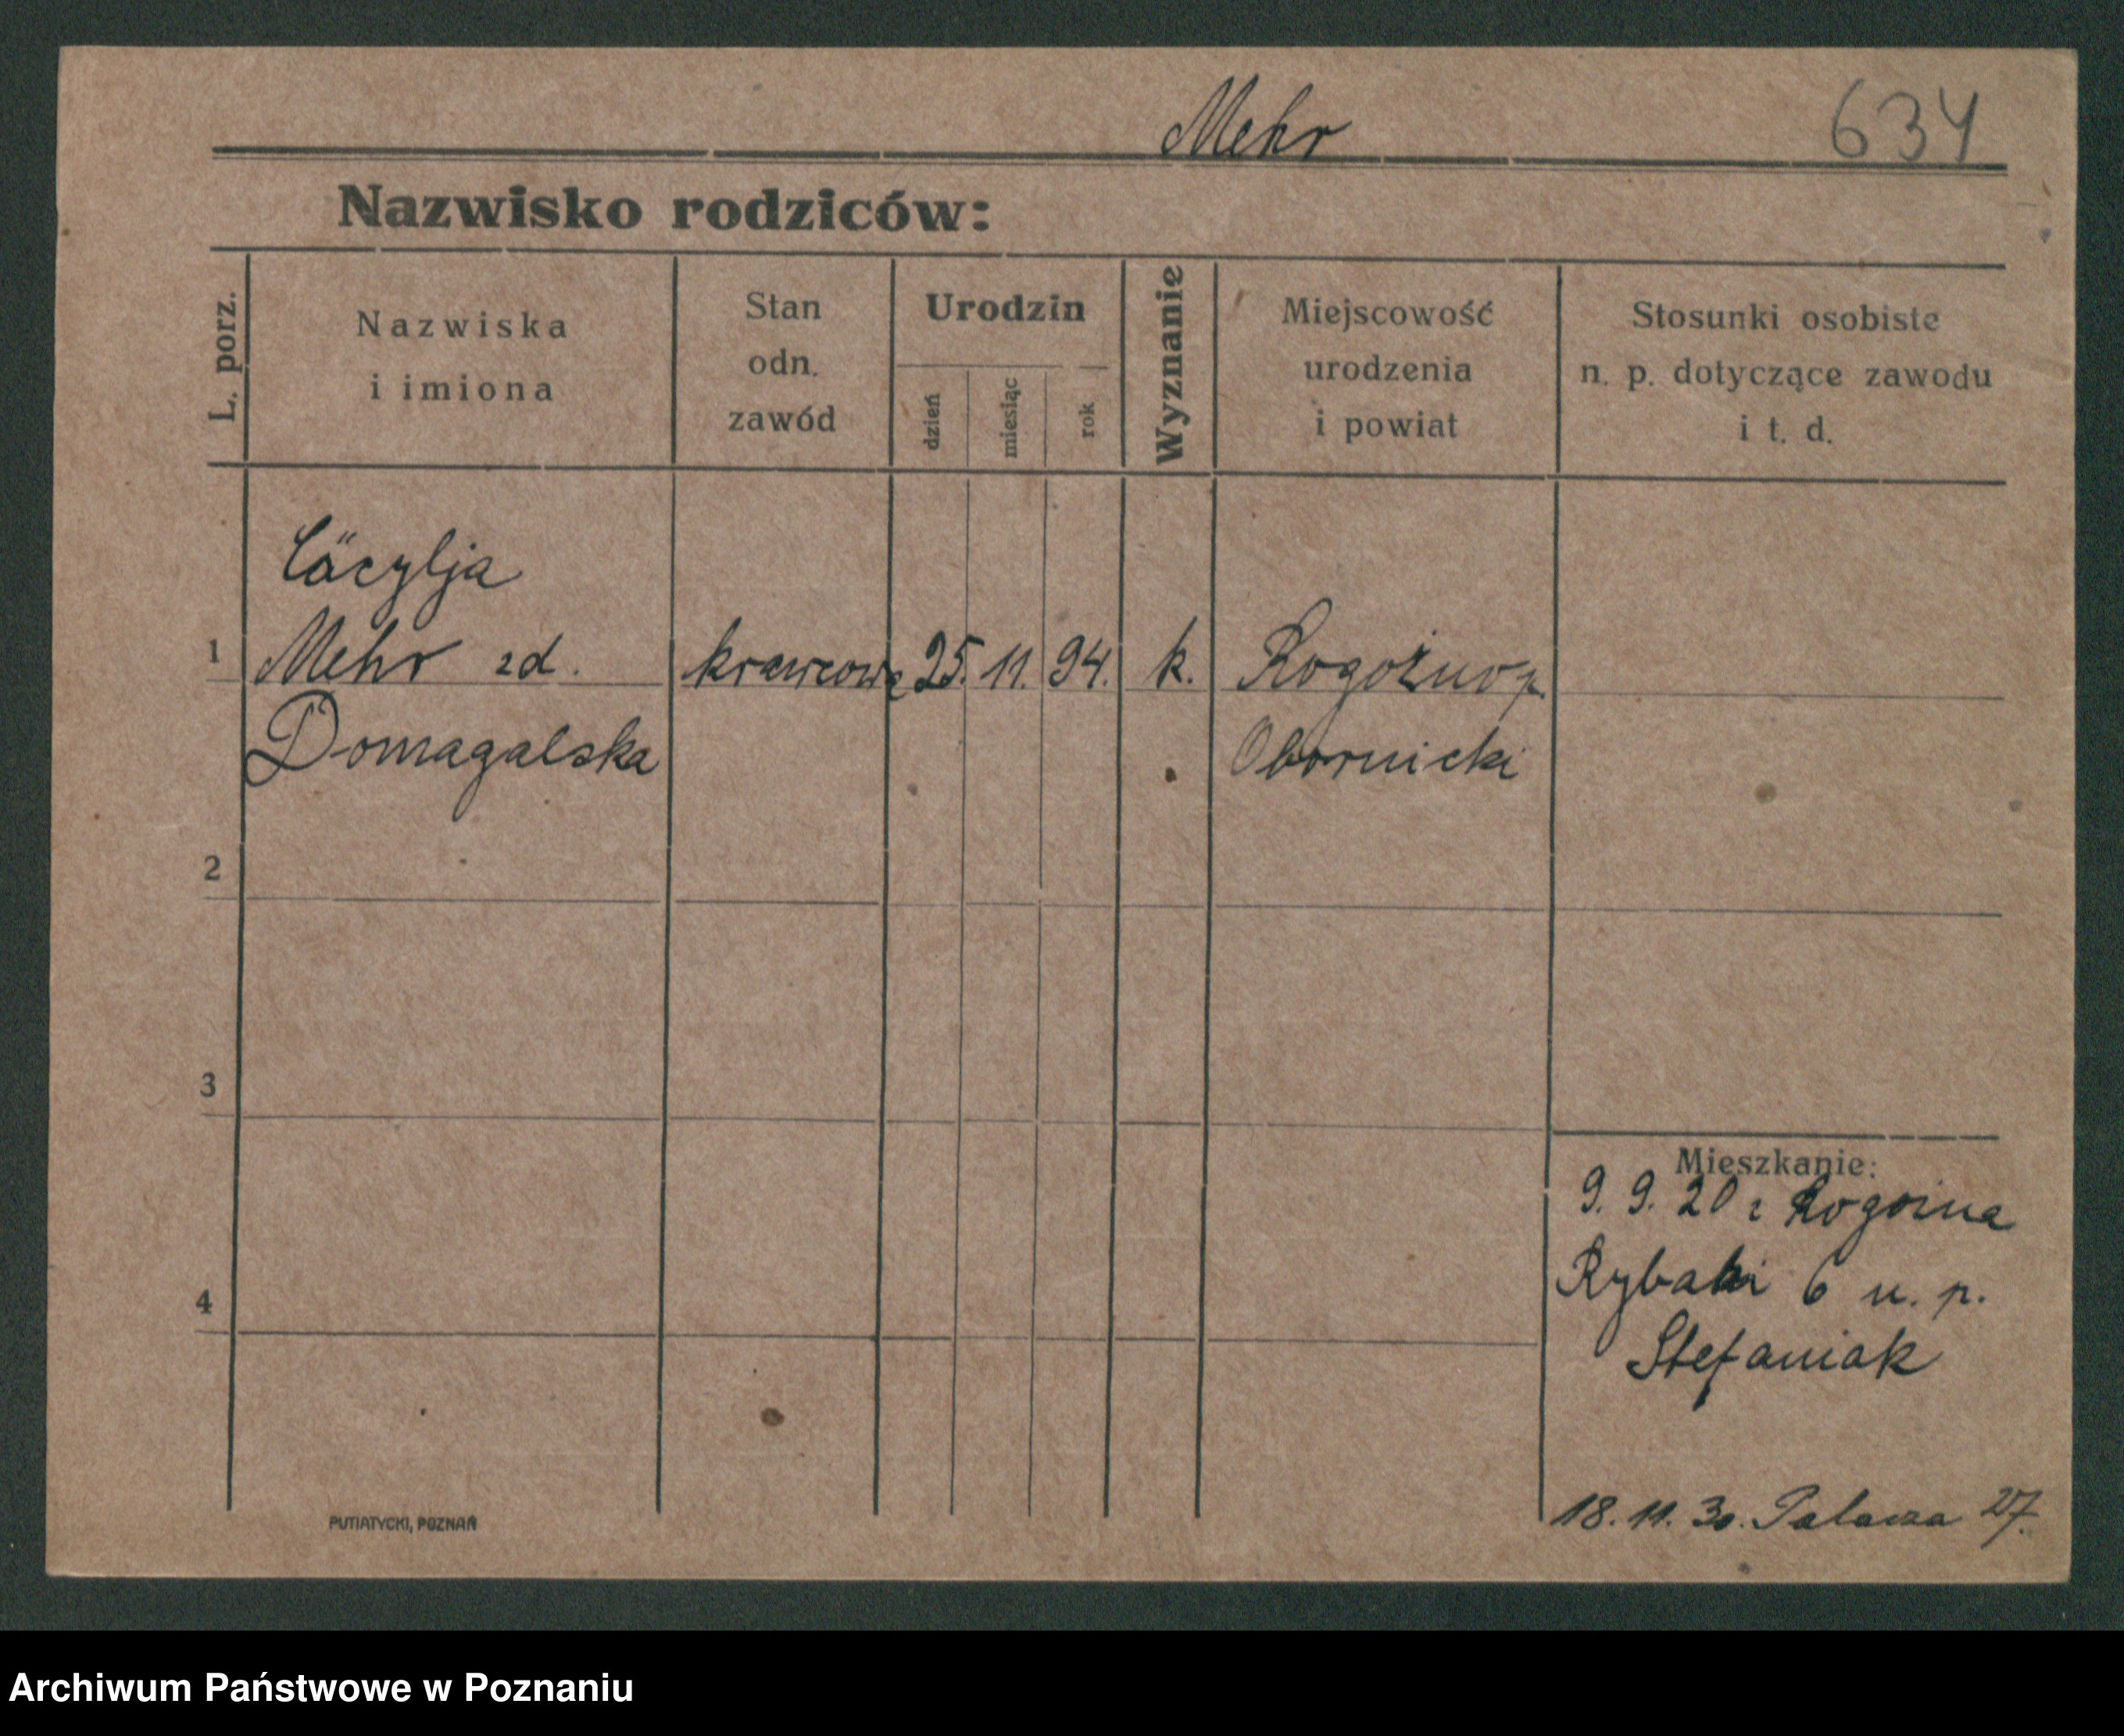 Mehr 634
Nazwisko rodziców:
L. porz.
Nazwiska
i imiona
Stan
odn.
zawód
Urodzin
dzień
miesiąc
rok
Wyznanie
Miejscowość
urodzenia
i powiat
Stosunki osobiste
n. p. dotyczące zawodu
i t. d.
Cäcylja
1 Mehr zd. krawcowa 25. 11. 94. k. Rogoźno p.
Domagalska Obornicki
2
3
4
Mieszkanie:
9. 9. 20 z Rogoźna
Rybaki 6 u. p.
Stefaniak
18. 11. 30. Palacza 27.
PUTIATYCKI, POZNAŃ
Archiwum Państwowe w Poznaniu